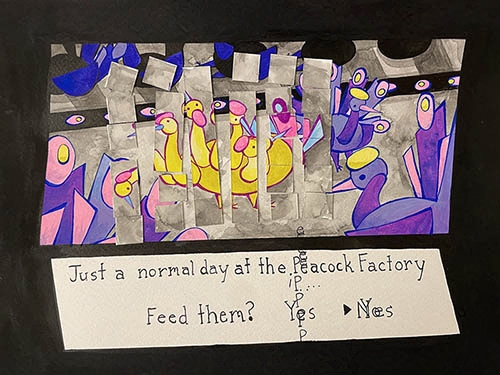 Just a normal day at the Peacock Factory
Feed them? Yes ▶